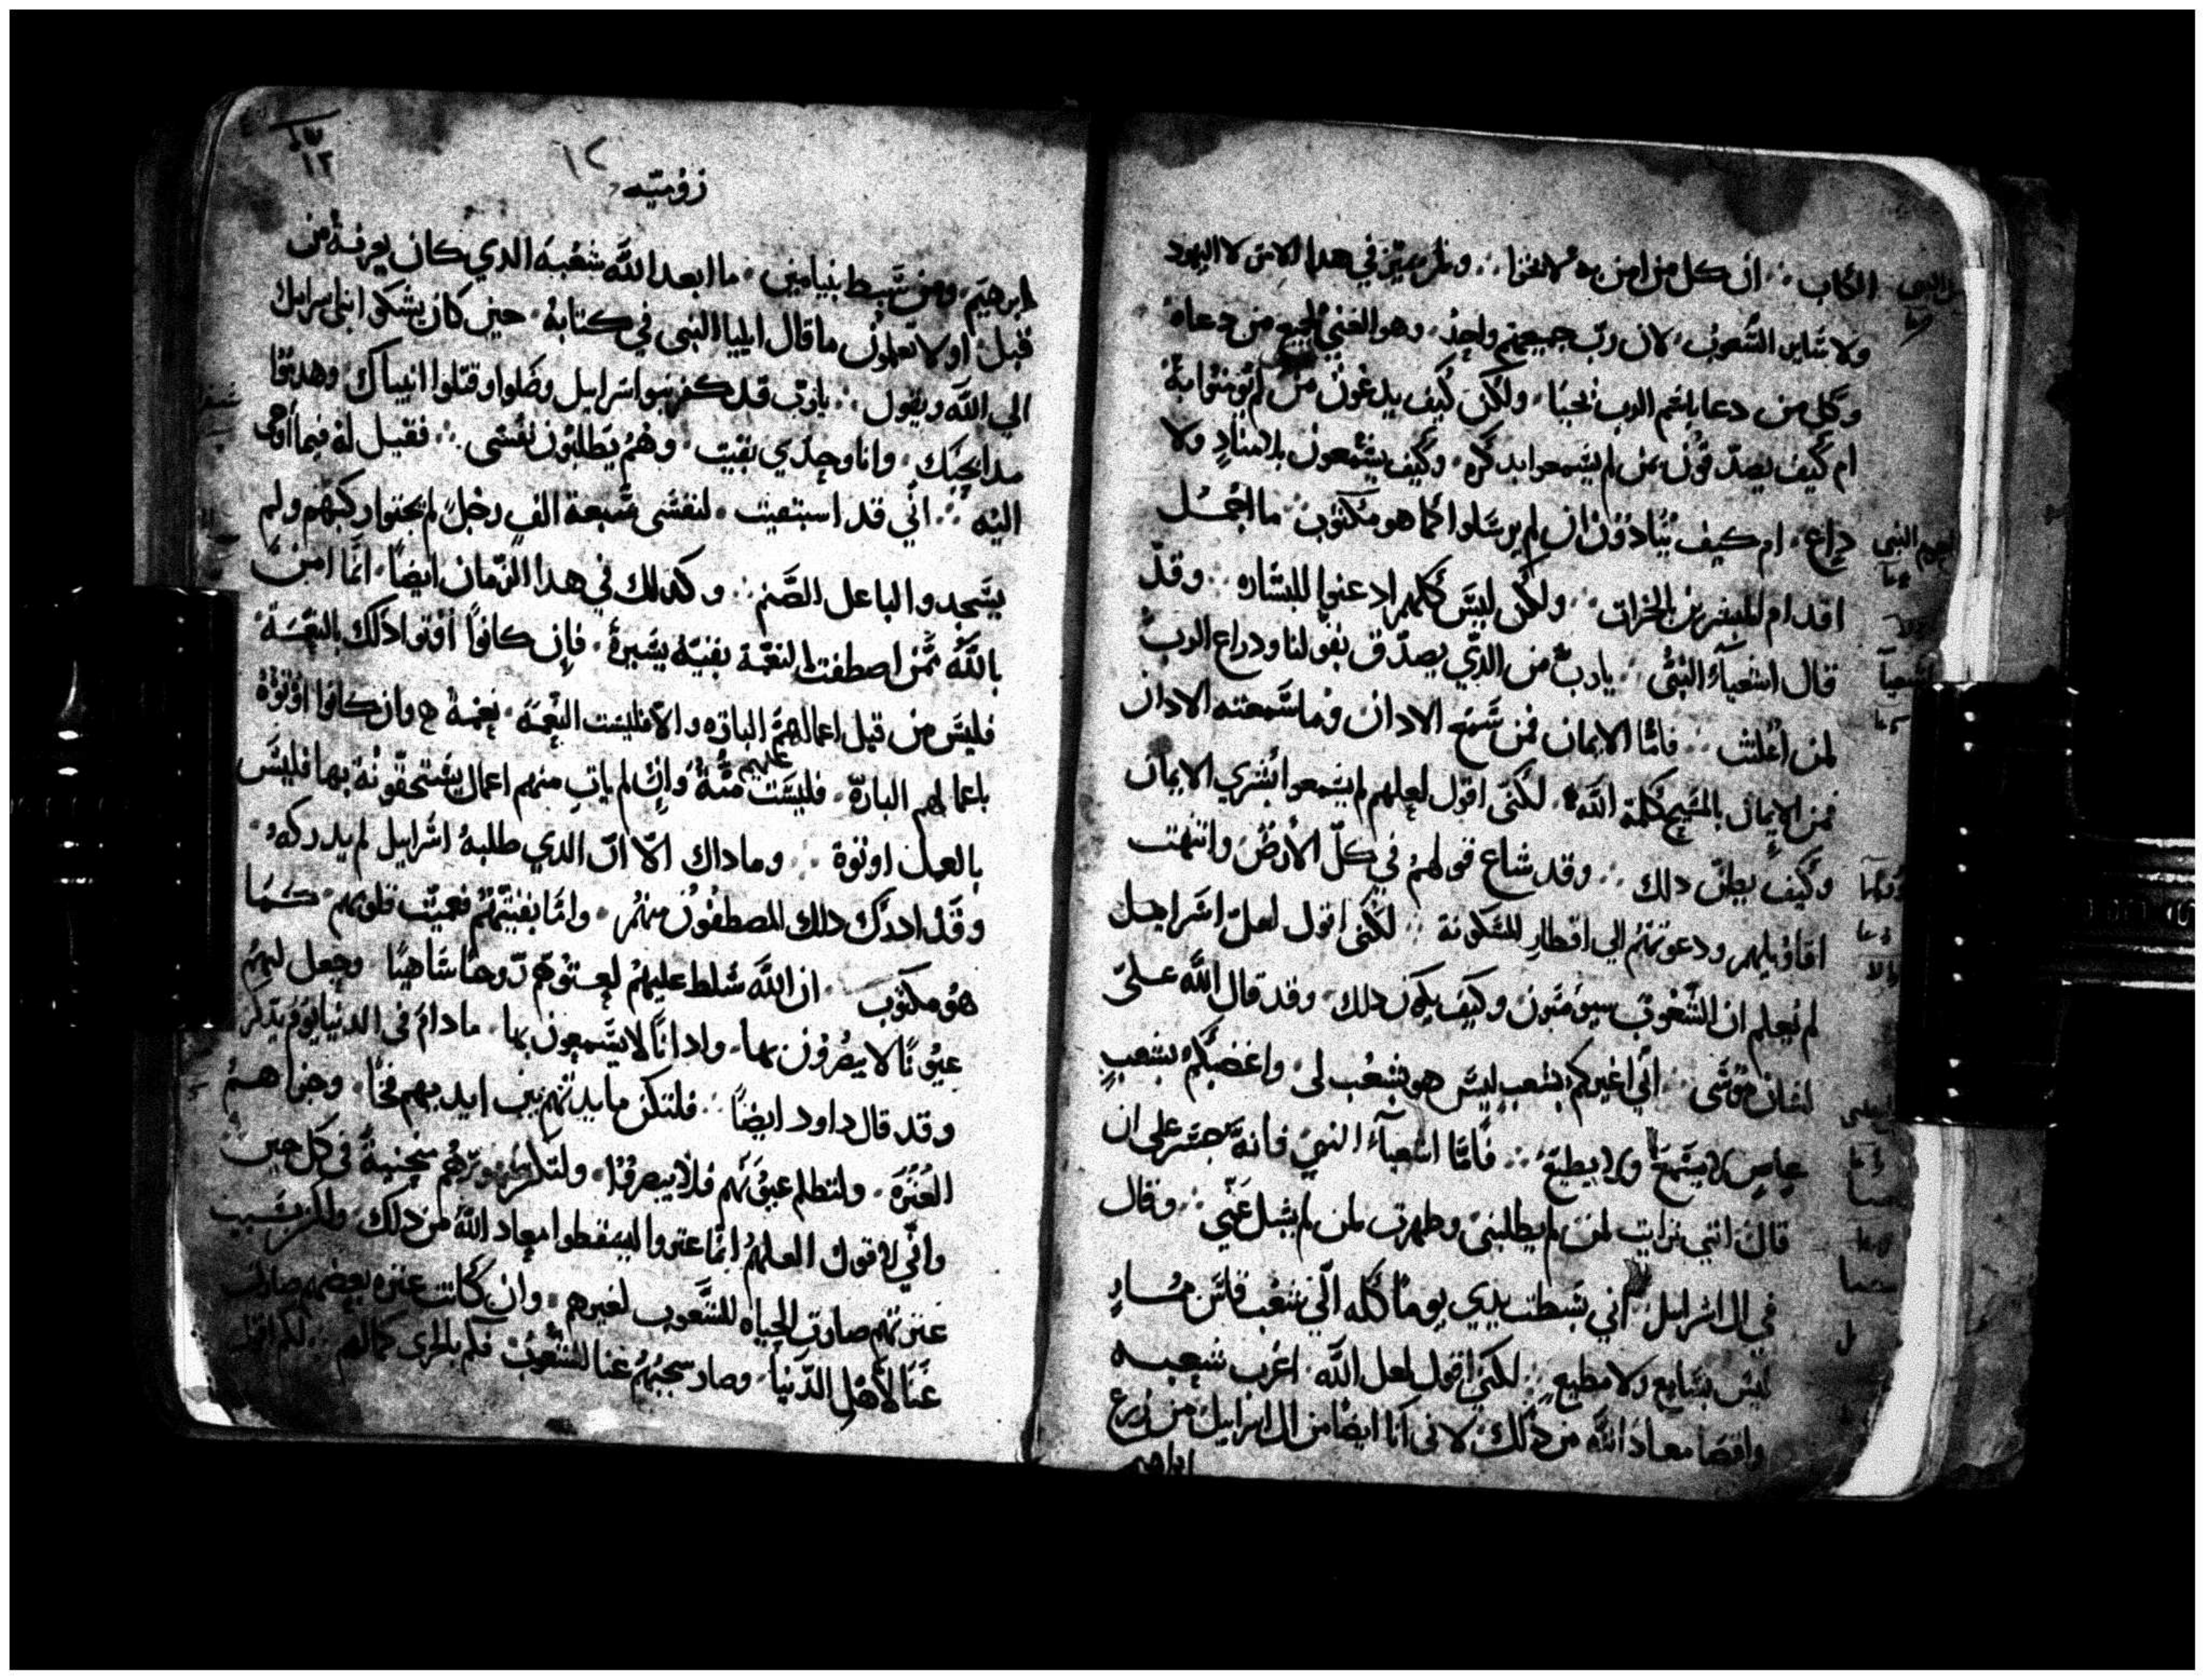 الكتاب ∴ ان كل من امن به لا يخزا ∴ ولم يميز في هدا الامر لا اليهود
ولا ساير الشعوب، لان رب جميعهم واحد، وهو الغني لجميع من دعاه
وكل من دعا باسم الرب يحيا، ولكن كيف يدعون من لم يومنوا به
ام كيف يصدقون بمن لم يسمعوا بدكره، وكيف يسمعون بلا مناد ولا
داع، ام كيف ينادون ان لم يرسلوا كما هو مكتوب ما اجمل
اقدام المبشرين بالخيرات ∴ ولكن ليس كلهم ادعنوا للبشاره ∴ وقد
قال اشعياء النبي ∴ يا رب من الذي يصدق بقولنا ودراع الرب
لمن اعلنت ∴ فاما الايمان فمن سمع الادان وما سمعته الادان
فمن الايمان بالمسيح كلمة الله، لكني اقول لعلهم لم يسمعوا بشري الايمان
وكيف يظن دلك ∴ وقد شاع قولهم في كل الارض وانتهت
اقاويلهم ودعوتهم الي اقطار المسكونة ∴ لكني اقول لعل اسراييل
لم يعلم ان الشعوب سيومنون وكيف يكون دلك، وقد قال الله علي
لسان موسي ∴ اني اغيركم بشعب ليس هو بشعب لي، واغضبكم بشعب
عاص لا يسمع ولا يطيع ∴ فاما اشعياء النبي فانه جسر علي ان
قال انني ترايت لمن لم يطلبني وظهرت لمن لم يسل عني ∴ وقال
في ال اسراييل اني بسطت يدي يوما كله الي شعب
ليس بسامع ولا مطيع ∴ لكني اقول لعل الله اغرب شعبه
واقصا معاد الله من دلك، لاني انا ايضا من ال اسراييل من زرع
ابراهيم
١٢
روميه
ابرهيم، ومن سبط بنيامين، ما ابعد الله شعبه الدي كان يعرفه من
قبل، اولا تعلمون ما قال ايليا النبي في كتابه، حين كان يشكوا ابني اسرايل
الي الله ويقول ∴ يا رب قد كفر بنوا اسراييل وضلوا وقتلوا انبياك وهدموا
مدابحك، وانا وحدي بقيت، وهم يطلبون نفسي ∴ فقيل له فيما اوحي
اليه ∴ اني قد استبقيت لنفسي سبعة الف رجل لم يجثوا ركبهم ولم
يسجدوا لباعل الصنم ∴ وكدلك في هدا الزمان ايضا، انما امن
بالله ممن اصطفت النعمة بقية يسيرة، فان كانوا اوتوا دلك بالنعمة
فليس من قبل اعمالهم الباره والا فليست النعمة، نعمة وان كانوا اوتوه
باعمالهم البارة، فليست منة عليهم وان لم يات منهم اعمال يستحقونه بها فليس
بالعمل اوتوه ∴ وما داك الا ان الدي طلبه اسراييل لم يدركه
وقد ادرك دلك المصطفون منهم، واما بقيتهم فعميت قلوبهم كما
هو مكتوب ان الله سلط عليهم لعتوهم روحا ساهيا وجعل لهم
عيونا لا يبصرون بها، وادانا لا يسمعون بها ما دام في الدنيا يوم يدكر
وقد قال داود ايضا ∴ فلتكن مايدتهم بين ايديهم فخا، وجزاهم
العثرة، ولتظلم عيونهم فلا يبصروا، ولتكن ظهورهم منحنية في كل حين
واني لاقول العلهم انما عثروا ليسقطوا معاد الله من دلك ولكن بسبب
عثرتهم صارت الحياه للشعوب لغيرهم، وان كانت عثرة بعضهم صارت
غنا لاهل الدنيا، وصار سجبهم غنا للشعوب فكم بالحري كمالهم ∴ لكم اقول